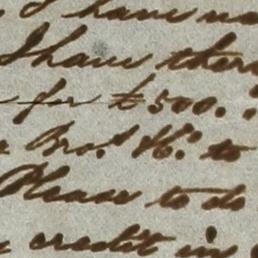 I have
I have ther
for £500.
Bro.s H.s to
Please to do
credit in